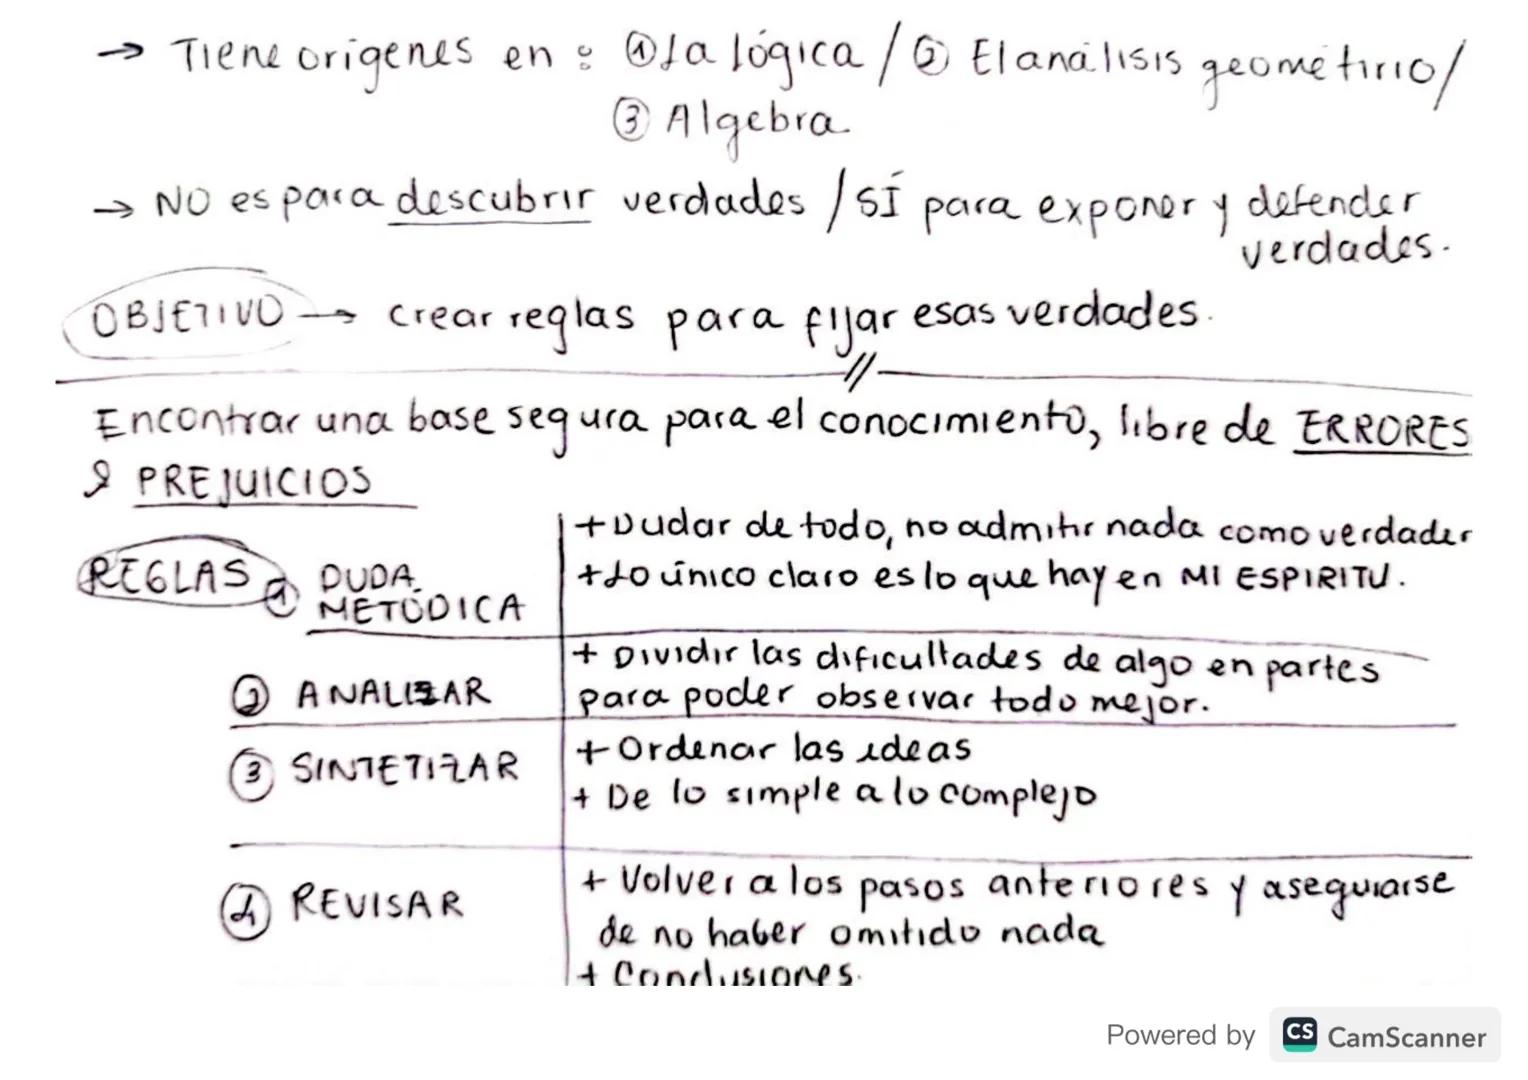 → Tiene origenes en : ① La lógica / ② El análisis geométirio /
③ Algebra.
→ NO es para descubrir verdades / SÍ para exponer y defender
verdades.
OBJETIVO → crear reglas para fijar esas verdades.
//
Encontrar una base segura para el conocimiento, libre de ERRORES
& PREJUICIOS
REGLAS ① DUDA METÓDICA
+ Dudar de todo, no admitir nada como verdader
+ Lo único claro es lo que hay en MI ESPIRITU.
② ANALIZAR
+ Dividir las dificultades de algo en partes
para poder observar todo mejor.
③ SINTETIZAR
+ Ordenar las ideas
+ De lo simple a lo complejo
④ REVISAR
+ Volver a los pasos anteriores y asegurarse
de no haber omitido nada
+ Conclusiones.
Powered by CS CamScanner